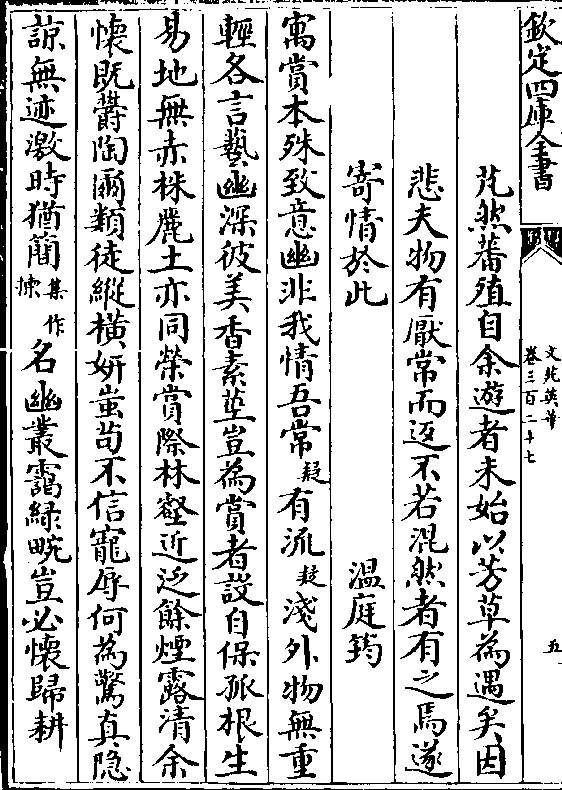 欽定四庫全書
文苑英華
卷三百二十七
五
芃然蕃殖自余遊者未始以芳草為遇矣因
悲夫物有厭常而返不若混然者有之焉遂
寄情於此
溫庭筠
寓賞本殊致意幽非我情吾常疑有流疑淺外物無重
輕各言藝幽深彼美香素莖豈為賞者設自保孤根生
易地無赤株麗土亦同榮賞際林壑近泛餘煙露清余
懷既鬱陶爾類徒縱橫妍蚩茍不信寵辱何為驚真隱
諒無迹激時猶簡集作揀名幽叢靄綠畹豈必懷歸耕